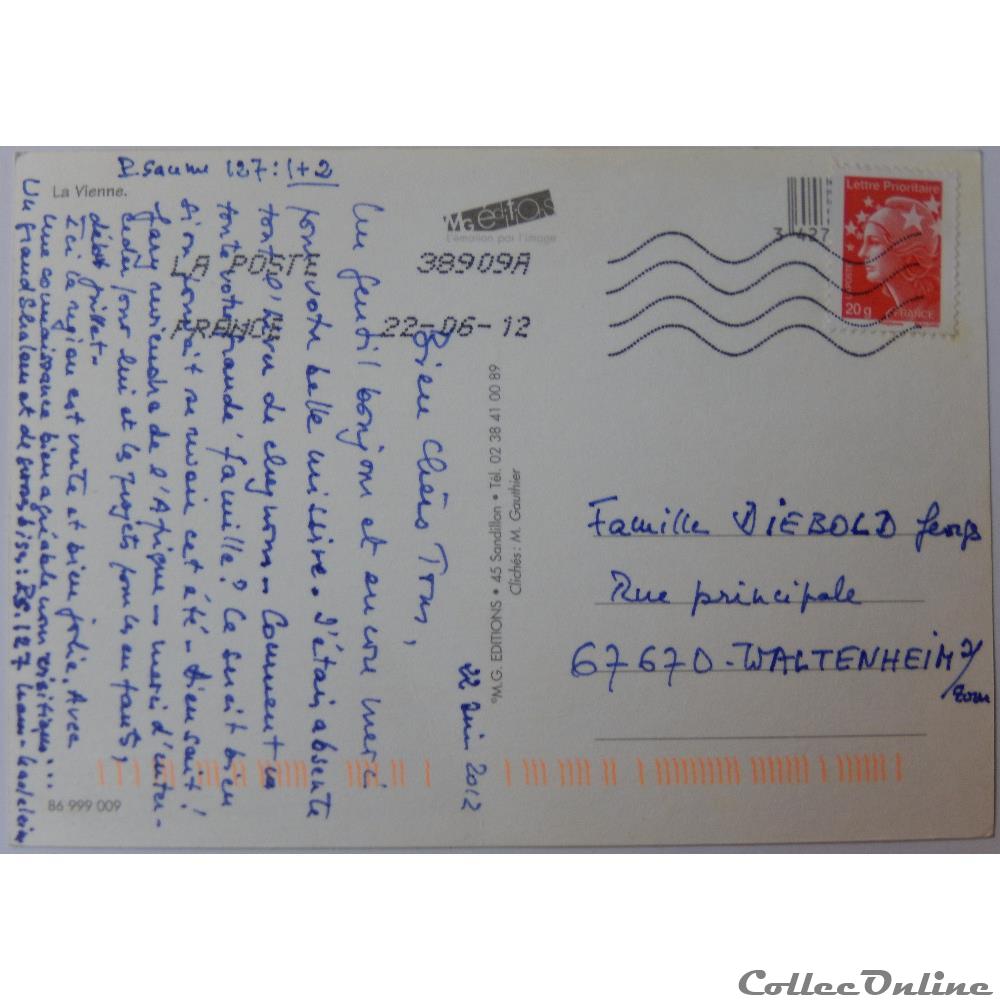 La Vienne.
Psaume 127:1+2
MG éditions
L'émotion par l'image
LA POSTE 38909A
FRANCE 22-06-12
Lettre Prioritaire
LA POSTE
20 g
FRANCE
22 Juin 2012
Bien Chers Tous,
Un gentil bonjour et encore merci
pour votre belle missive. J'étais absente
toute de Comment va
toute votre grande famille? Ce serait bien
si on pourrait se revoir cet été - Dien sait!
Gary reviendra de l'Afrique - merci d'inter-
céder pour lui et les projets pour les enfants,
début juillet -
Ici la région est verte et bien jolie. Avec
une connaissance bien agréable nous visitions...
Un grand Shalom et de gross bises: Ps. 127
°M.G. EDITIONS • 45 Sandillon • Tél. 02 38 41 00 89
Clichés: M. Gauthier
Famille DIEBOLD Georges
Rue principale
67670-WALTENHEIM s/
Zorn
86 999 009
CollecOnline